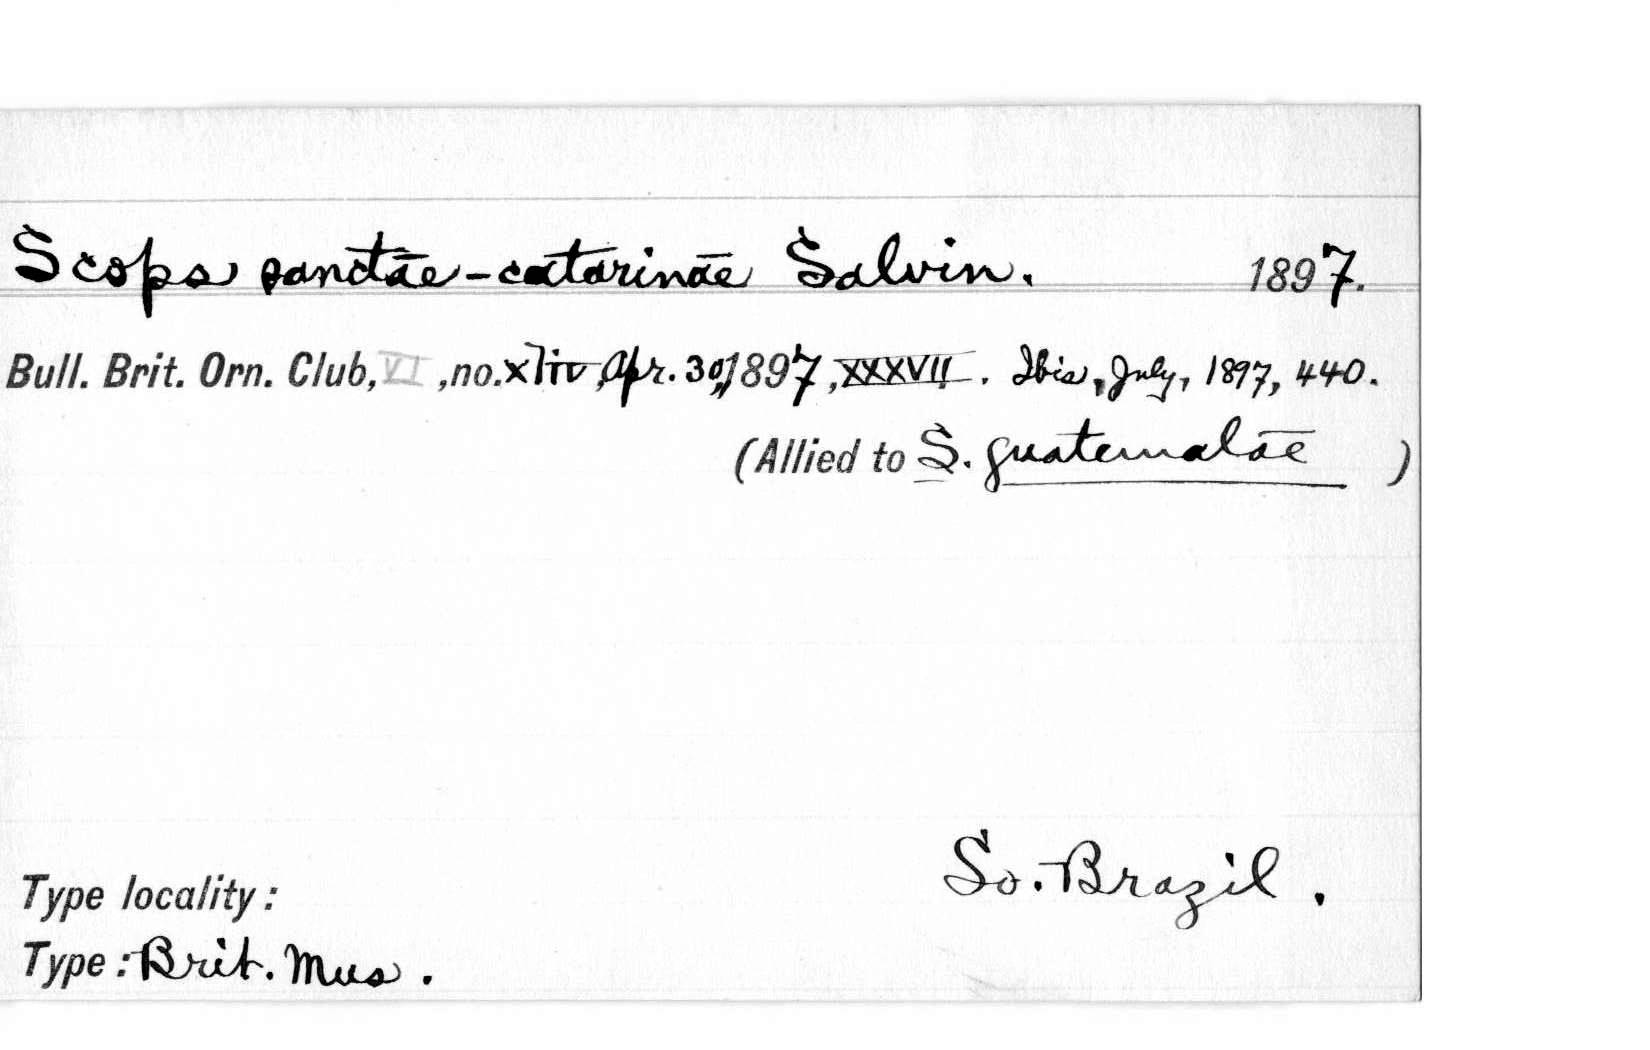 Scops sanctae-catarinae Salvin. 1897.
Bull. Brit. Orn. Club, VI, no. xliv, Apr. 30, 1897, XXXVII. Ibis, July, 1897, 440.
(Allied to S. guatemalae)
So. Brazil.
Type locality:
Type: Brit. Mus.